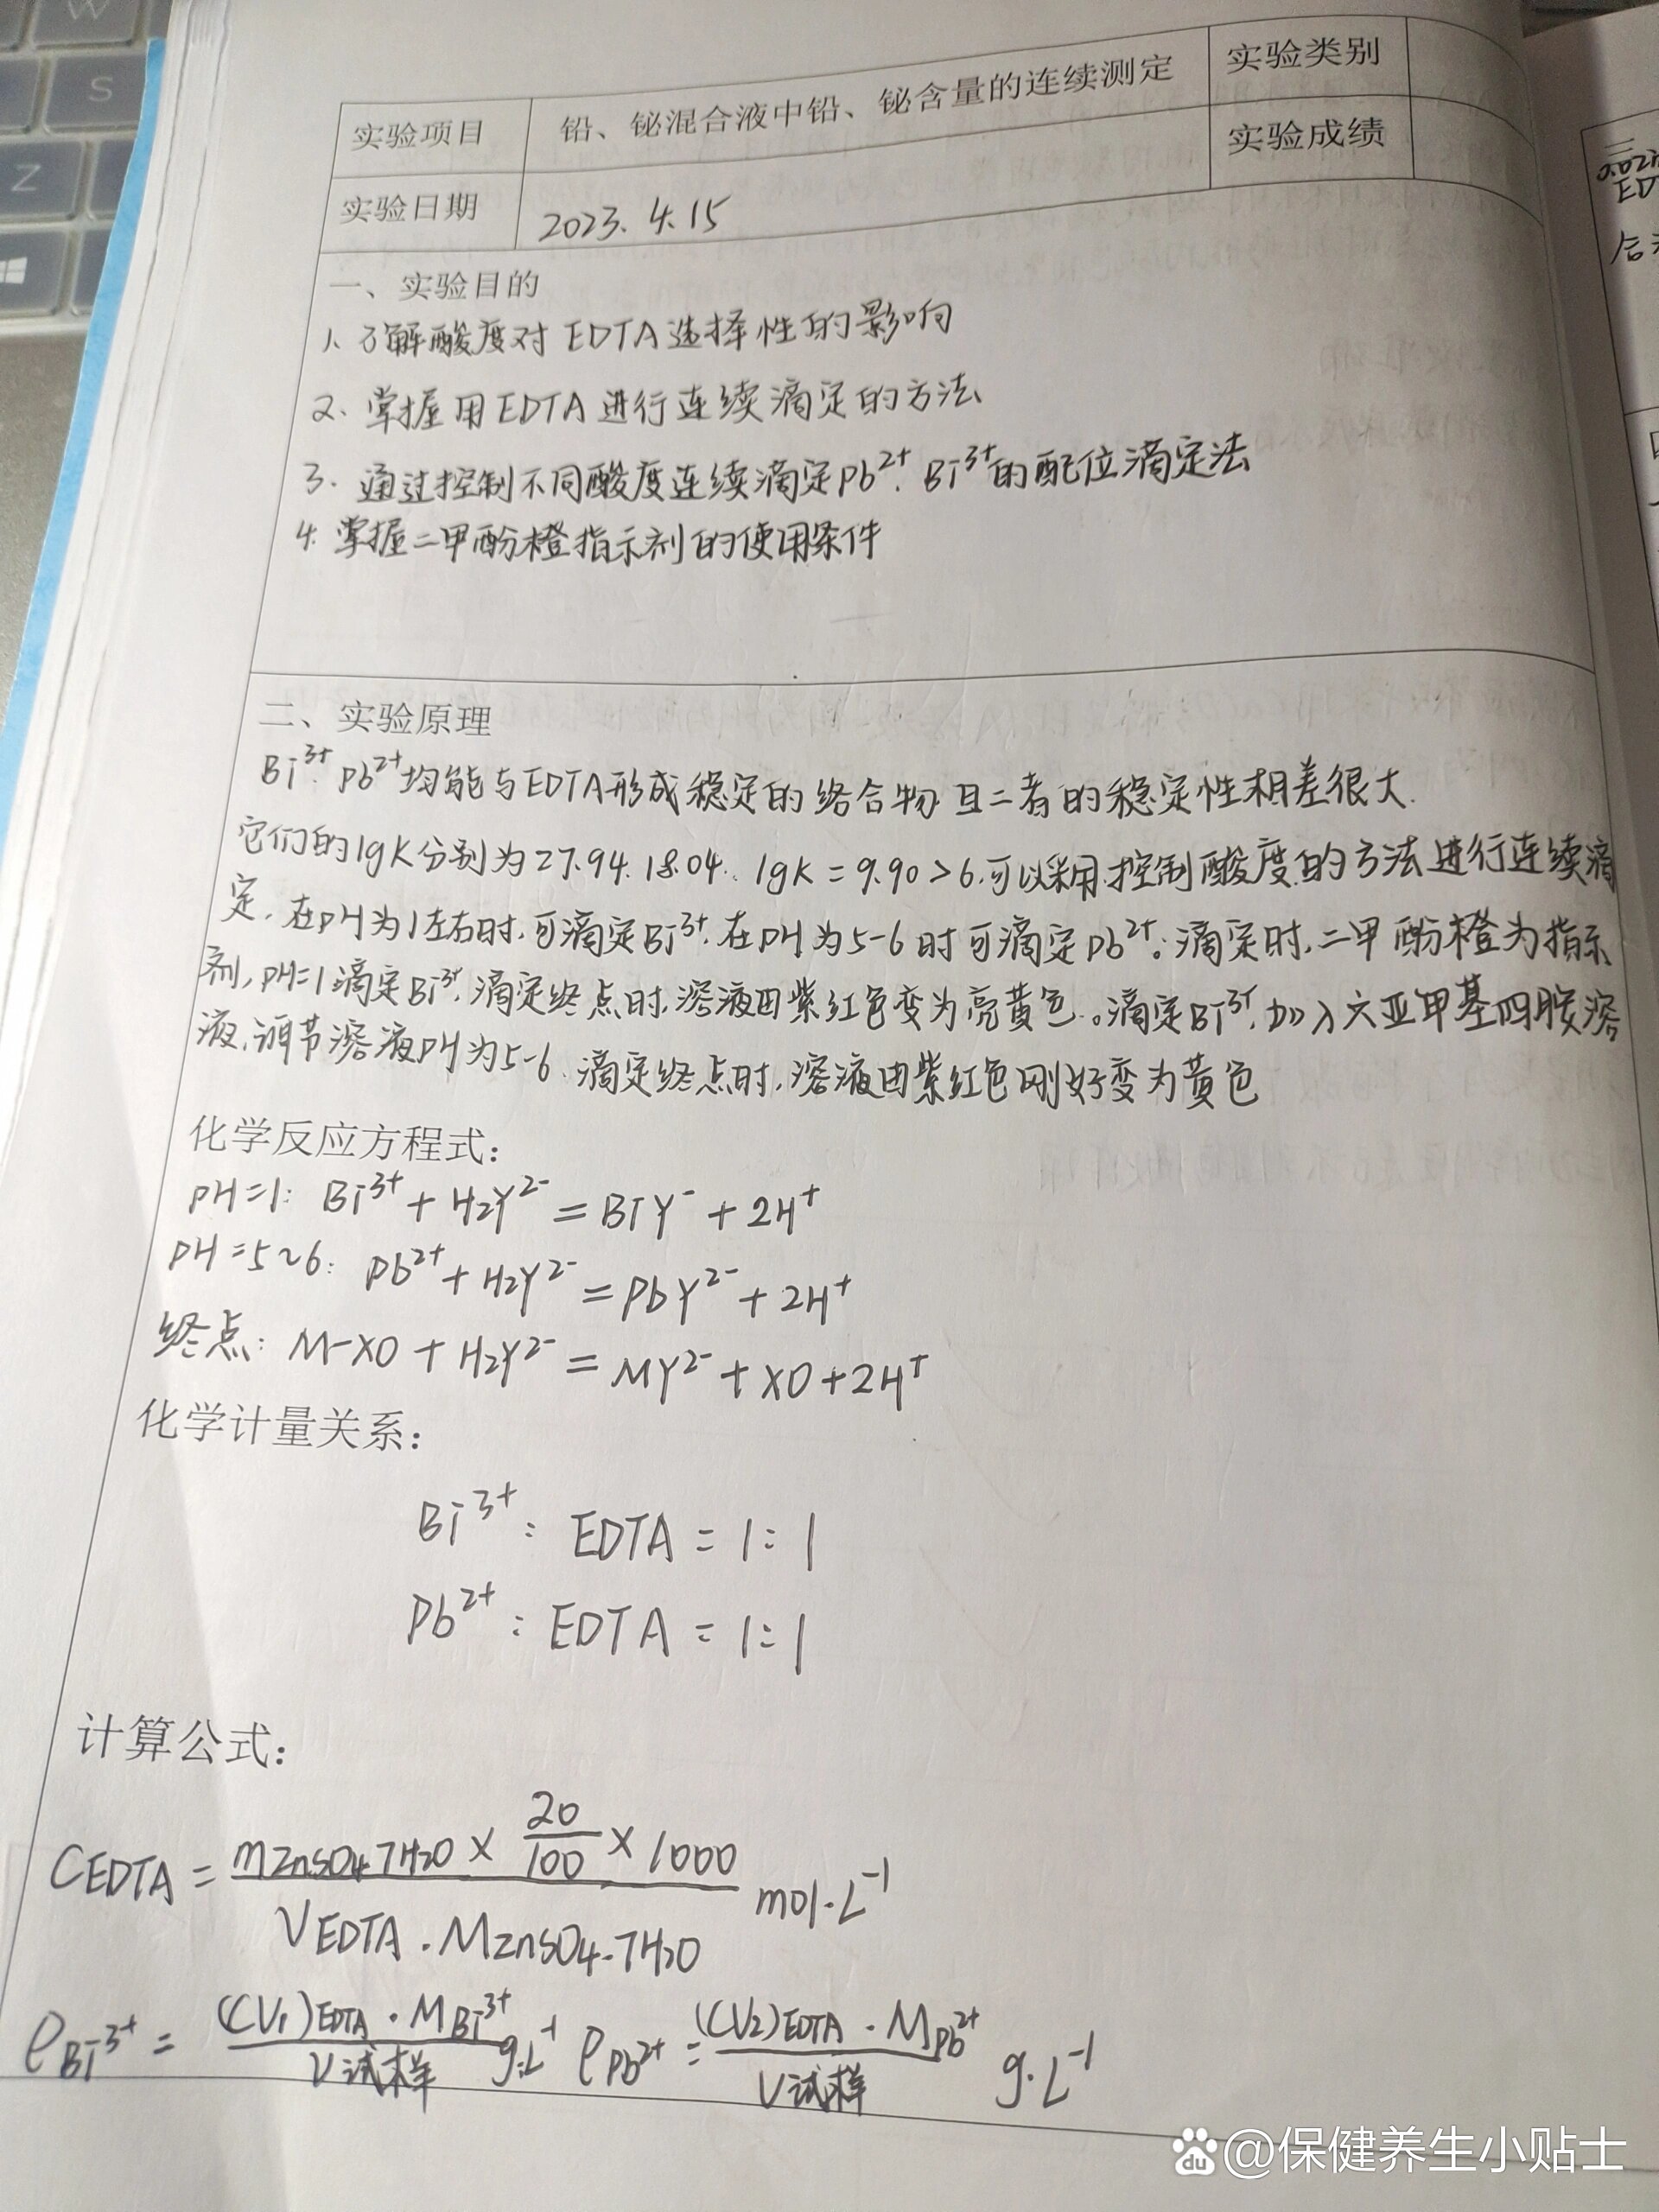 W
S
Z
实验项目 铅、铋混合液中铅、铋含量的连续测定 实验类别
实验日期 2023.4.15 实验成绩
一、实验目的
1、了解酸度对EDTA选择性的影响
2、掌握用EDTA进行连续滴定的方法
3、通过控制不同酸度连续滴定Pb²⁺、Bi³⁺的配位滴定法
4、掌握二甲酚橙指示剂的使用条件
二、实验原理
Bi³⁺、Pb²⁺均能与EDTA形成稳定的络合物且二者的稳定性相差很大.
它们的lgK分别为27.94、18.04. lgK=9.90>6,可以采用控制酸度的方法进行连续滴
定,在pH为1左右时,可滴定Bi³⁺,在pH为5-6时可滴定Pb²⁺。滴定时,二甲酚橙为指示
剂,pH=1滴定Bi³⁺,滴定终点时,溶液由紫红色变为亮黄色。滴定Bi³⁺,加入六亚甲基四胺溶
液,调节溶液pH为5-6、滴定终点时,溶液由紫红色刚好变为黄色
化学反应方程式:
pH=1: Bi³⁺+H₂Y²⁻=BiY⁻+2H⁺
pH=5~6: Pb²⁺+H₂Y²⁻=PbY²⁻+2H⁺
终点: M-XO+H₂Y²⁻=MY²⁻+XO+2H⁺
化学计量关系:
Bi³⁺: EDTA=1:1
Pb²⁺: EDTA=1:1
计算公式:
CEDTA = mZnSO₄7H₂O × 20/100 × 1000 / VEDTA·MZnSO₄·7H₂O mol·L⁻¹
ρBi³⁺ = (CV₁)EDTA·MBi³⁺ / V试样 g·L⁻¹ ρPb²⁺ = (CV₂)EDTA·MPb²⁺ / V试样 g·L⁻¹
三
0.02
ED
du @保健养生小贴士